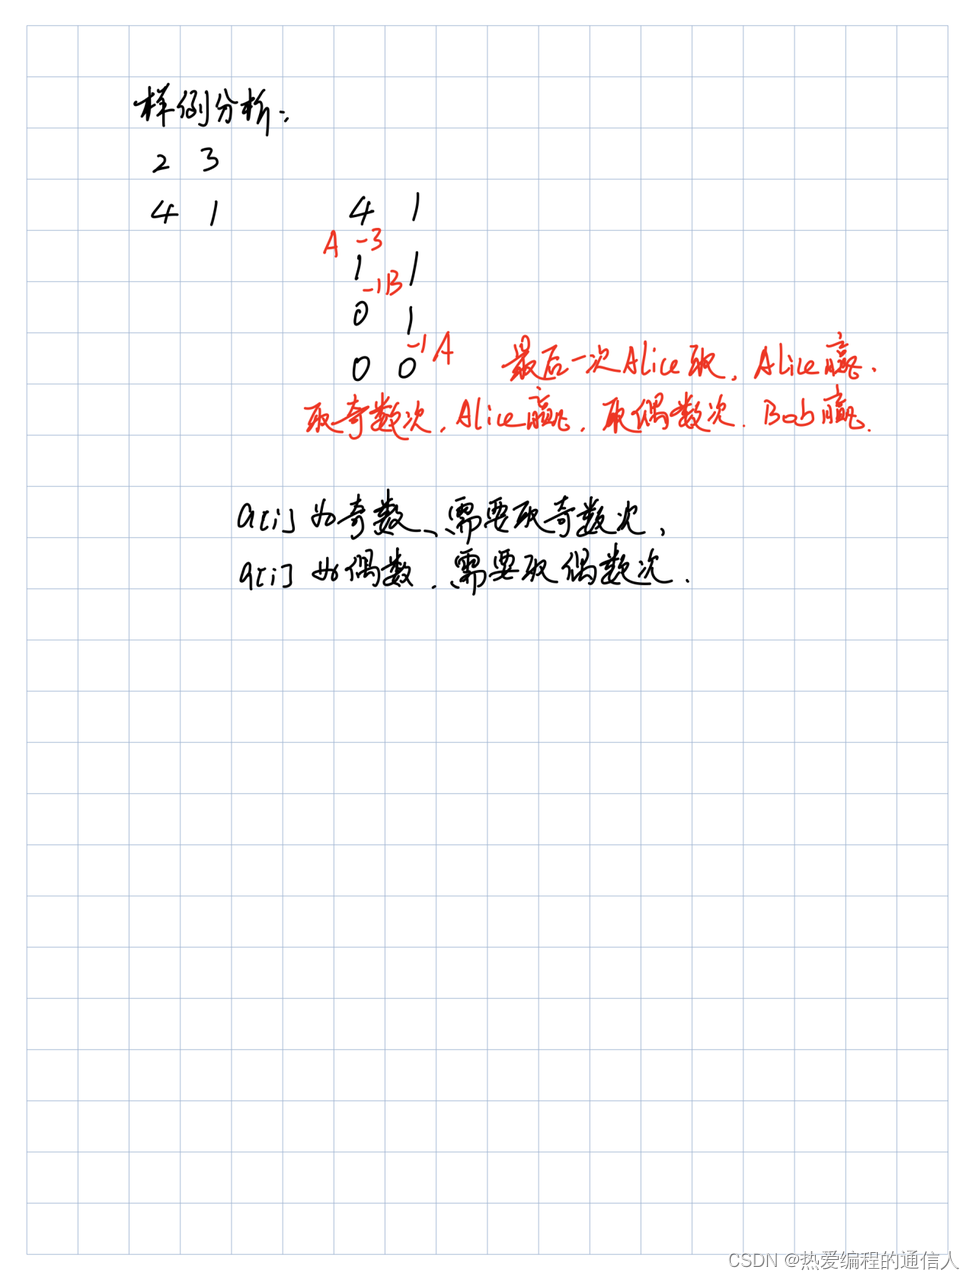 样例分析:
2 3
4 1
4 1
A -3
1 1
-1 B
0 1
-1 A
0 0 最后一次Alice取,Alice赢.
取奇数次,Alice赢,取偶数次.Bob赢.
a[i]为奇数、需要取奇数次,
a[i]为偶数.需要取偶数次.
CSDN @热爱编程的通信人